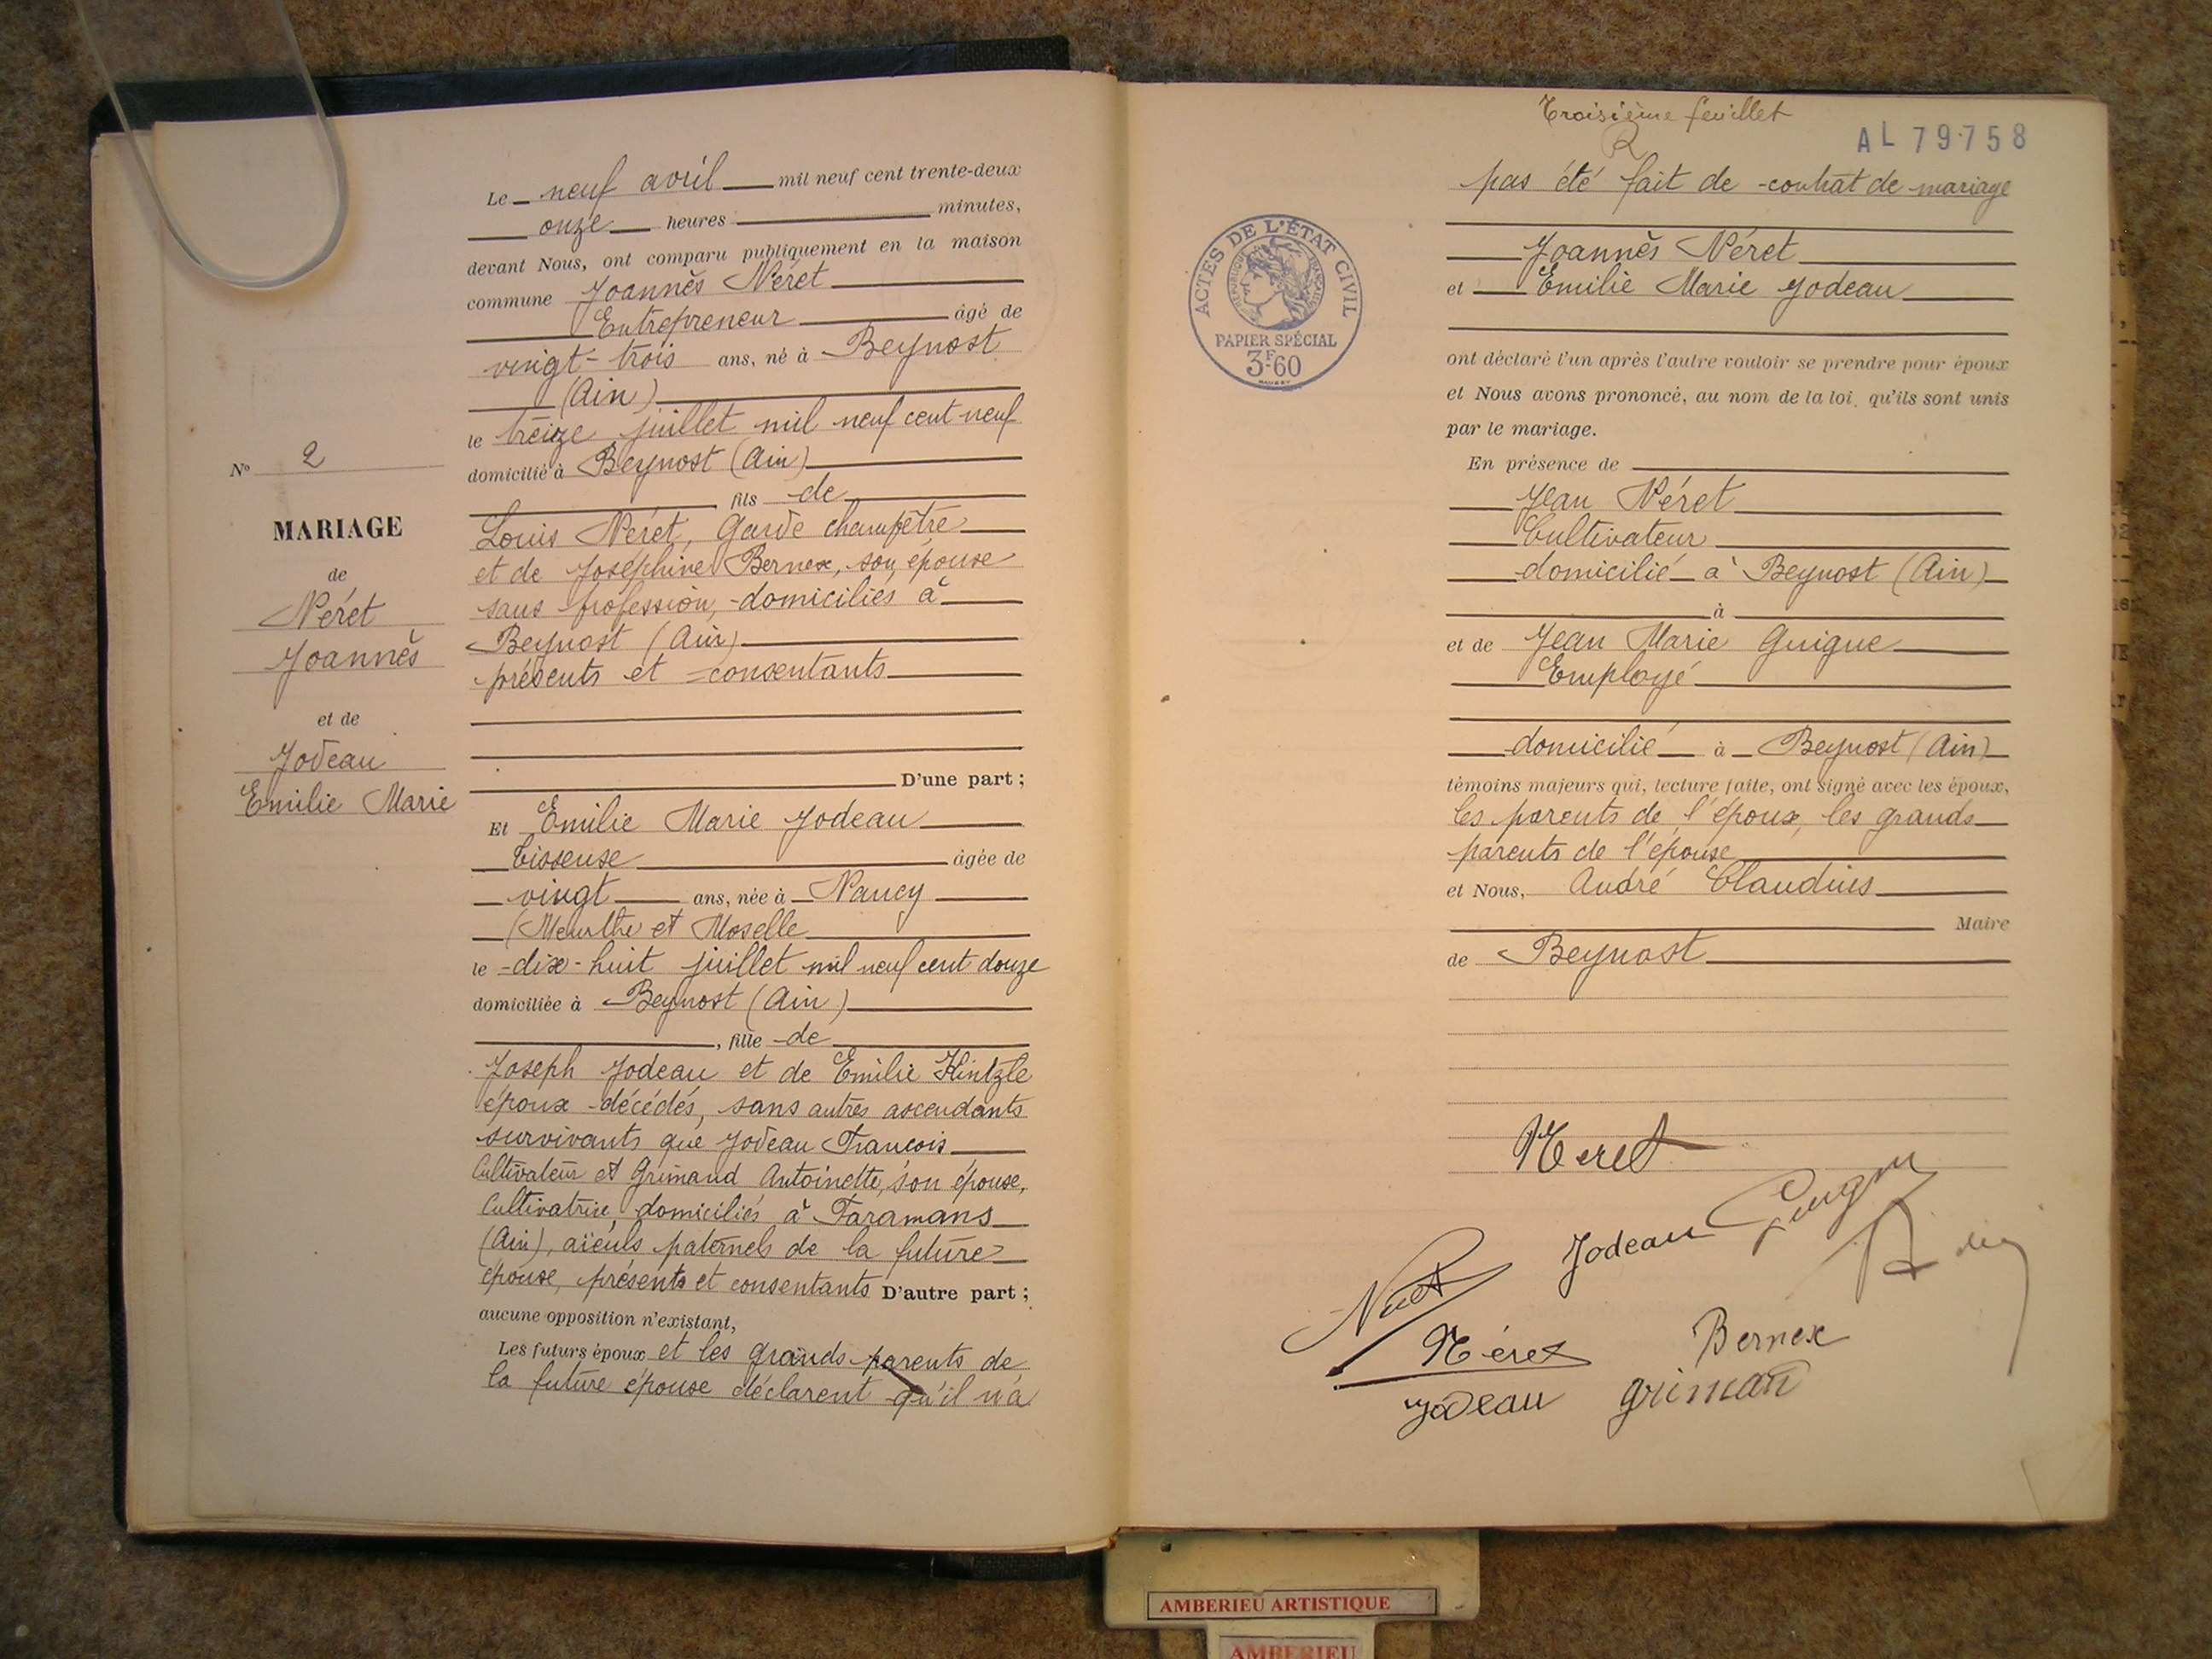 Le neuf avril mil neuf cent trente-deux
onze heures minutes,
devant Nous, ont comparu publiquement en la maison
commune Joannès Néret
Entrepreneur âgé de
vingt-trois ans, né à Beynost
(Ain)
le treize juillet mil neuf cent neuf
domicilié à Beynost (Ain)
fils de
Louis Néret, Garde champêtre
et de Joséphine Bernex, son épouse
sans profession, domiciliés à
Beynost (Ain)
présents et consentants
D'une part ;
Et Emilie Marie Jodeau
tisseuse âgée de
vingt ans, née à Nancy
(Meurthe et Moselle
le dix-huit juillet mil neuf cent douze
domiciliée à Beynost (Ain)
, fille de
Joseph Jodeau et de Emilie Hintzle
époux décédés, sans autres ascendants
survivants que Jodeau François
Cultivateur et Grimand Antoinette, son épouse,
Cultivatrice, domiciliés à Faramans
(Ain), aïeuls paternels de la future
épouse, présents et consentants D'autre part ;
aucune opposition n'existant,
Les futurs époux et les grands-parents de
la future épouse déclarent qu'il n'a
No 2
MARIAGE
de
Néret
Joannès
et de
Jodeau
Emilie Marie
Troisième feuillet
AL 79758
pas été fait de contrat de mariage
Joannès Néret
et Emilie Marie Jodeau
ont déclaré l'un après l'autre vouloir se prendre pour époux
et Nous avons prononcé, au nom de la loi, qu'ils sont unis
par le mariage.
En présence de
Jean Néret
Cultivateur
domicilié à Beynost (Ain)
à
et de Jean Marie Guigue
Employé
domicilié à Beynost (Ain)
témoins majeurs qui, lecture faite, ont signé avec les époux,
les parents de l'époux, les grands
parents de l'épouse
et Nous, André Claudius
Maire
de Beynost
ACTES DE L'ÉTAT CIVIL
RÉPUBLIQUE FRANÇAISE
PAPIER SPÉCIAL
3F.60
Neret
Jodeau
Néret
Bernex
Jodeau
griman
AMBERIEU ARTISTIQUE
AMBERIEU